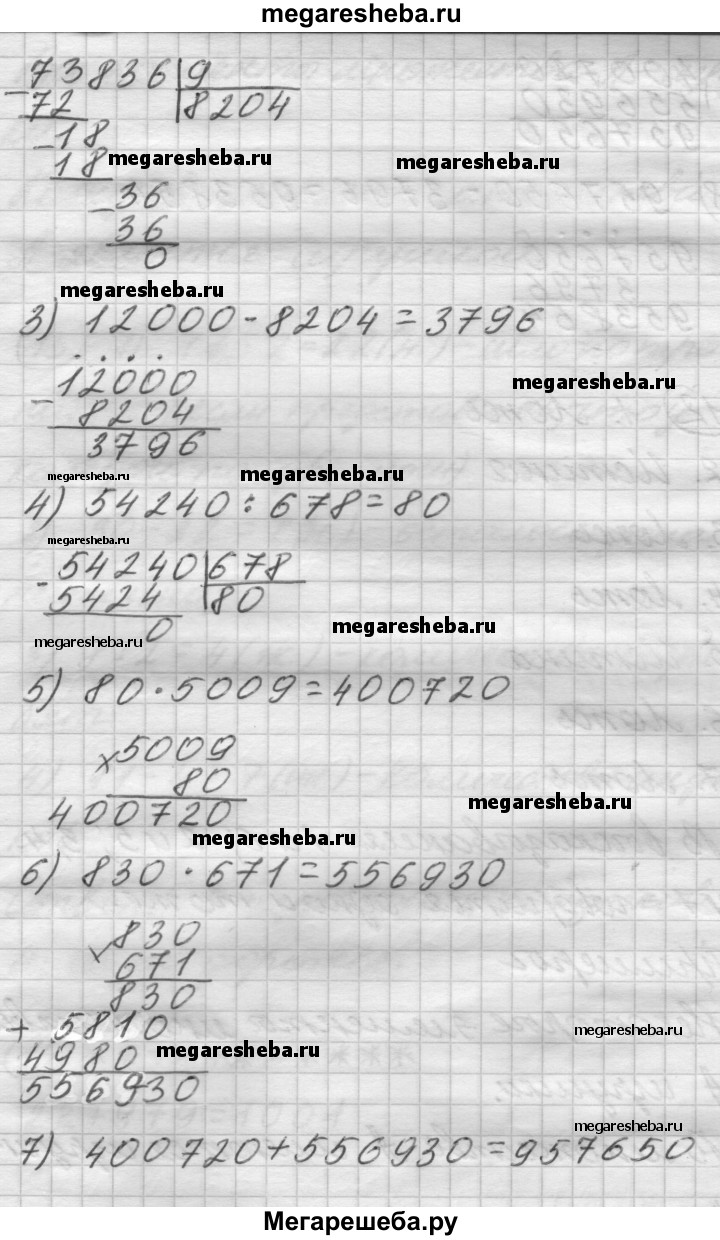 megaresheba.ru
73836 | 9
- 72 8204
- 18
18 megaresheba.ru megaresheba.ru
- 36
36
0
megaresheba.ru
3) 12000 - 8204 = 3796
. . . .
12000 megaresheba.ru
- 8204
3796
megaresheba.ru megaresheba.ru
4) 54240 : 678 = 80
megaresheba.ru
- 54240 | 678
5424 80
0 megaresheba.ru
megaresheba.ru
5) 80 · 5009 = 400720
× 5009
80
400720 megaresheba.ru
megaresheba.ru
6) 830 · 671 = 556930
× 830
671
830
+ 5810 megaresheba.ru
4980 megaresheba.ru
556930
7) 400720 + 556930 = 957650
megaresheba.ru
Мегарешеба.ру